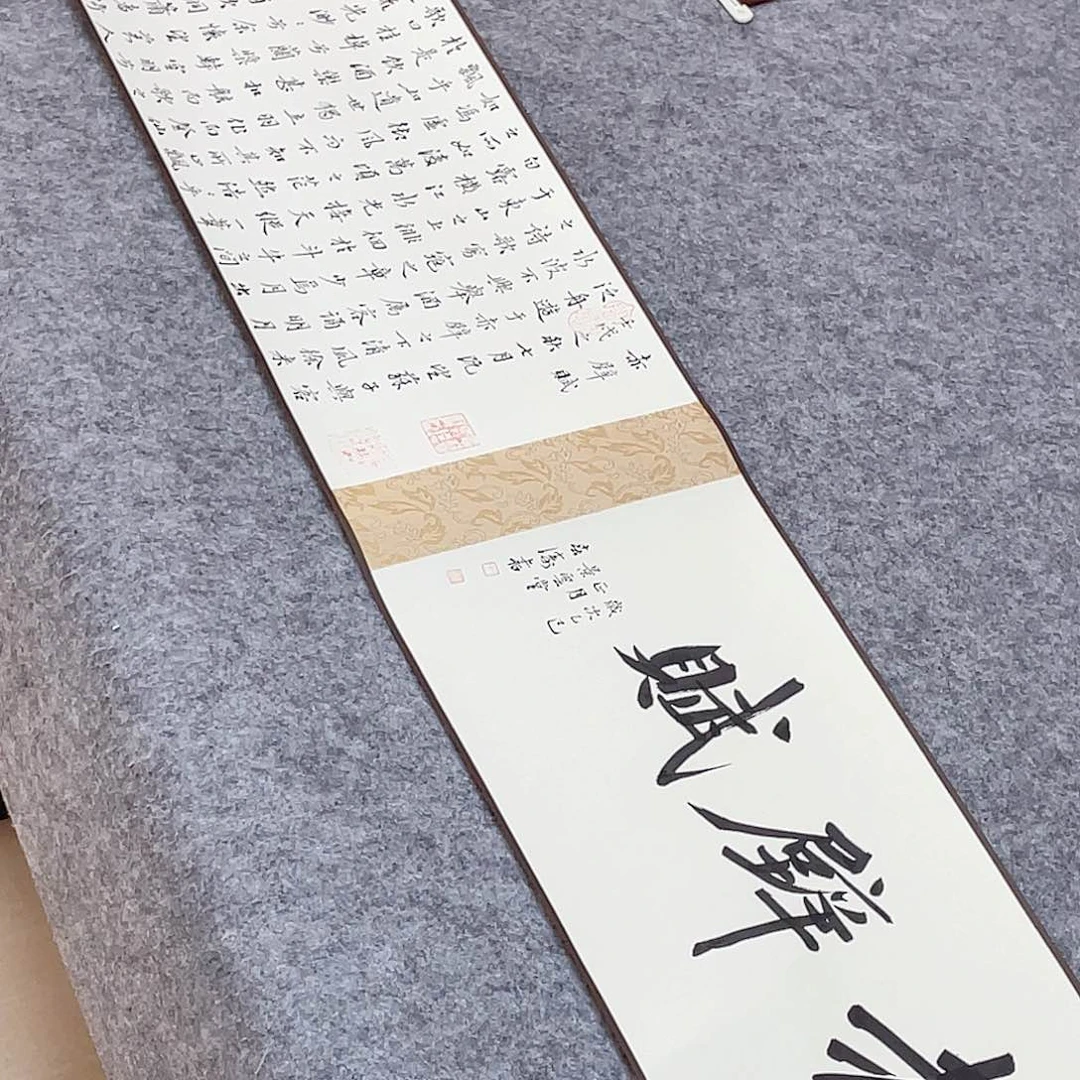 赤壁賦
歲次乙巳
正月
景雲堂
赤壁賦
壬戌之秋七月既望蘇子與客
泛舟遊于赤壁之下清風徐來
水波不興舉酒屬客誦明月
之詩歌窈窕之章少焉月出
于東山之上徘徊於斗牛之間
白露橫江水光接天縱一葦
之所如凌萬頃之茫然浩浩乎
如馮虛御風而不知其所止飄
飄乎如遺世獨立羽化而登仙
於是飲酒樂甚扣舷而歌之
歌曰桂棹兮蘭槳擊空明兮